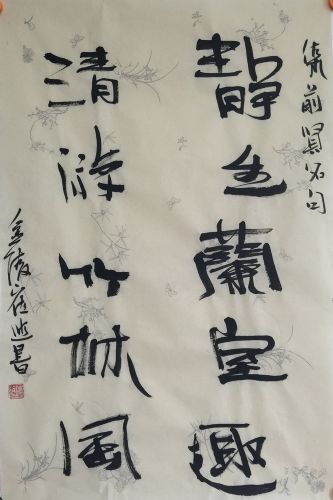 集前賢名句
靜生蘭室趣
清游竹林風
金陵崔書